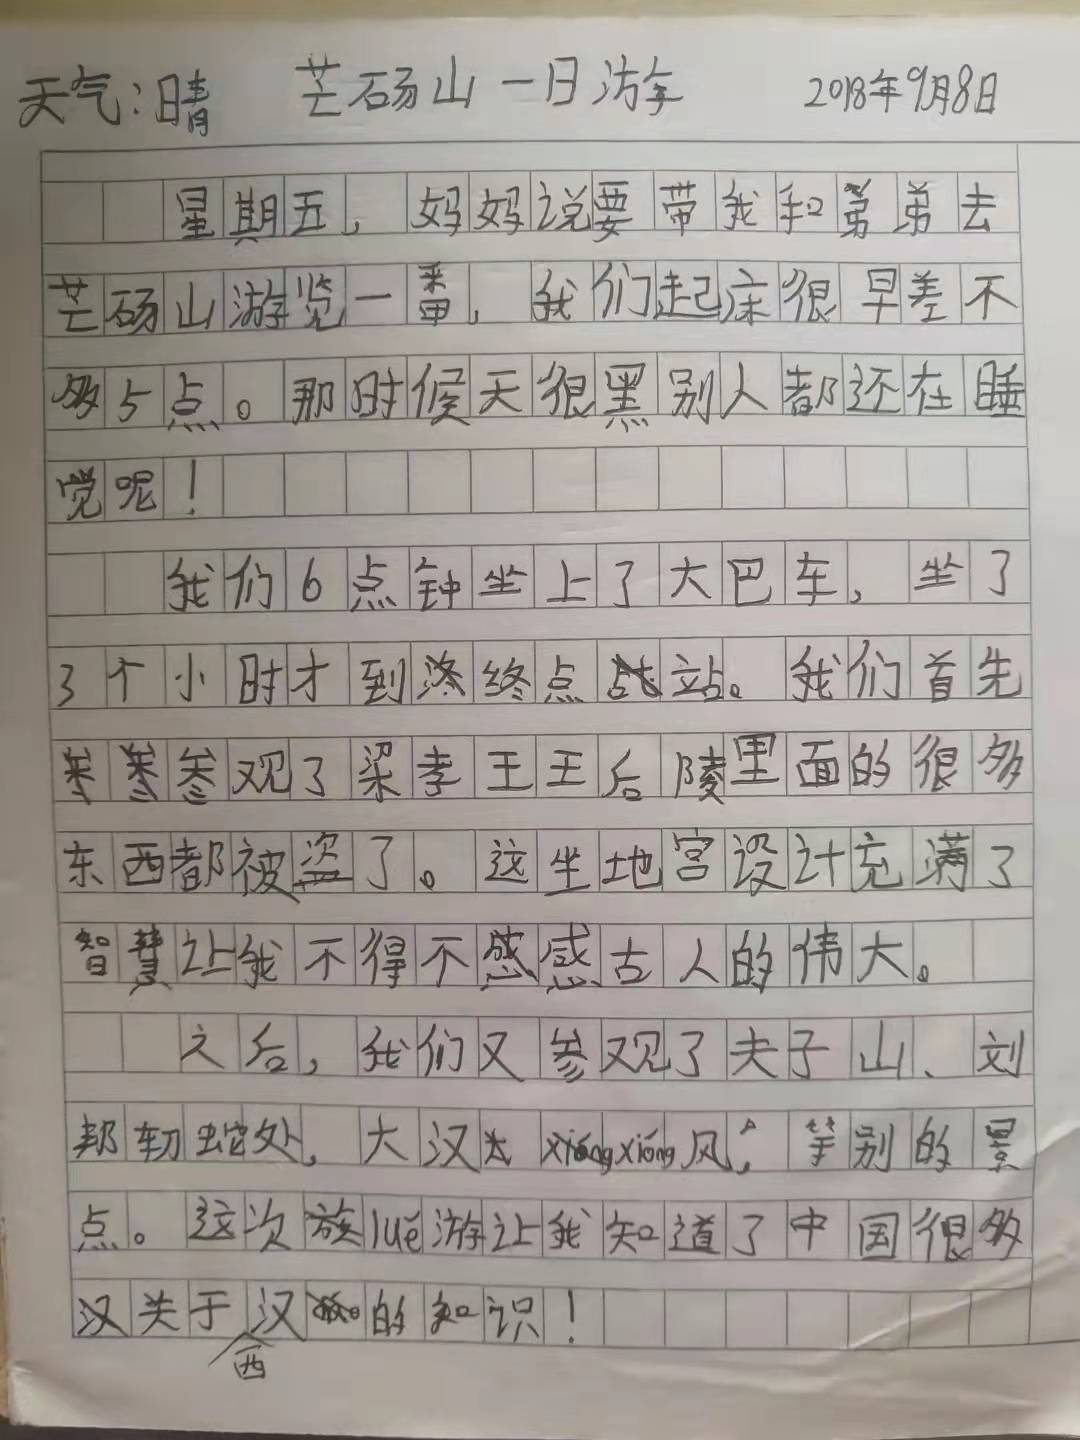 天气：晴 芒砀山一日游 2018年9月8日
星期五，妈妈说要带我和弟弟去
芒砀山游览一番，我们起床很早差不
多5点。那时候天很黑别人都还在睡
觉呢！
我们6点钟坐上了大巴车，坐了
3个小时才到终点站。我们首先
参观了梁孝王王后陵里面的很多
东西都被盗了。这坐地宫设计充满了
智慧让我不得不感古人的伟大。
之后，我们又参观了夫子山、刘
邦轫蛇处，大汉xióng风，等别的景
点。这次lüě游让我知道了中国很多
汉关于西汉的知识！